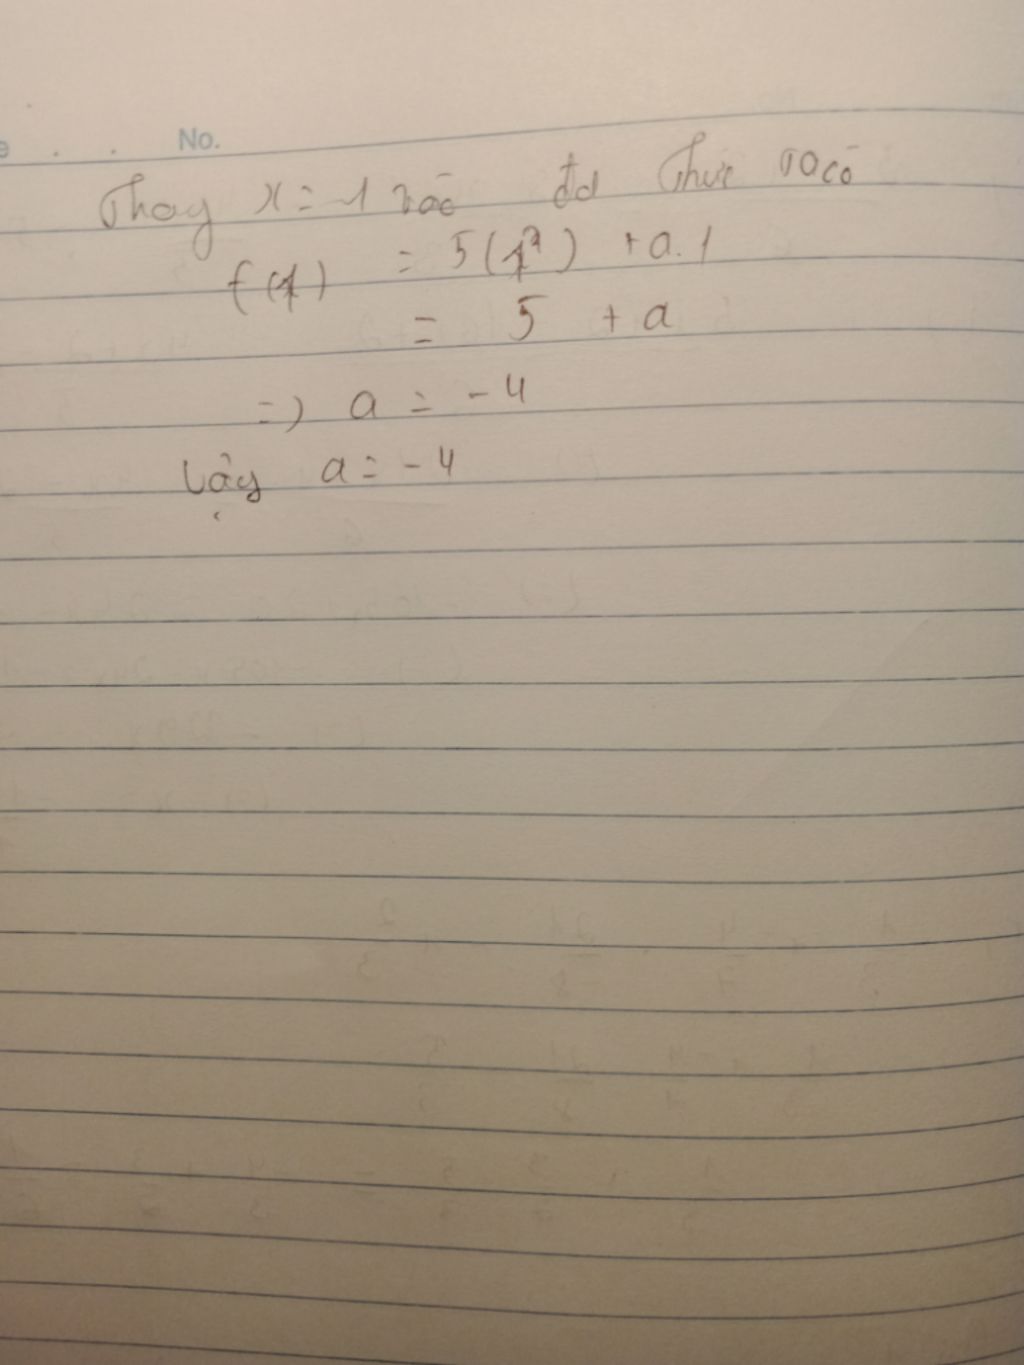 No.
Thay x = 1 vào đa thức ta có
f(1) = 5(1²) + a.1
= 5 + a
=> a = -4
Vậy a = -4